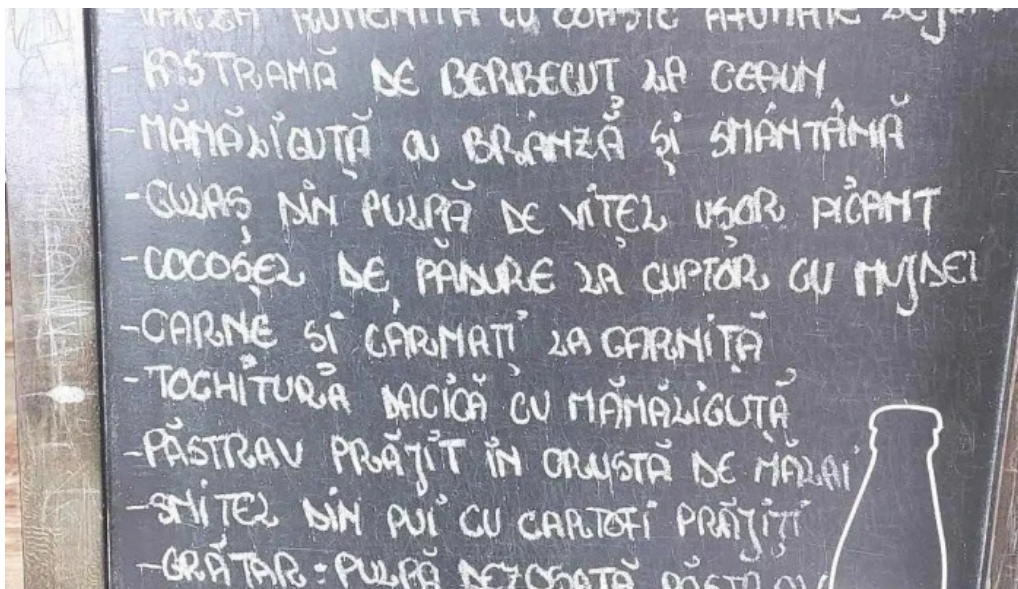 - VARZĂ RUMENITĂ CU COASTE AFUMATE
- PASTRAMĂ DE BERBECUȚ LA CEAUN
- MĂMĂLIGUȚĂ CU BRÂNZĂ ȘI SMÂNTÂNĂ
- GULAȘ DIN PULPĂ DE VIȚEL UȘOR PICANT
- COCOȘEL DE PĂDURE LA CUPTOR CU MUJDEI
- CARNE SI CÂRNAȚI LA GARNIȚĂ
- TOCHITURĂ DACICĂ CU MĂMĂLIGUȚĂ
- PĂSTRAV PRĂJIT ÎN CRUSTĂ DE MĂLAI
- SNITEL DIN PUI CU CARTOFI PRĂJIȚI
- GRĂTAR: PULPĂ DEZOSATĂ PĂSTRAV